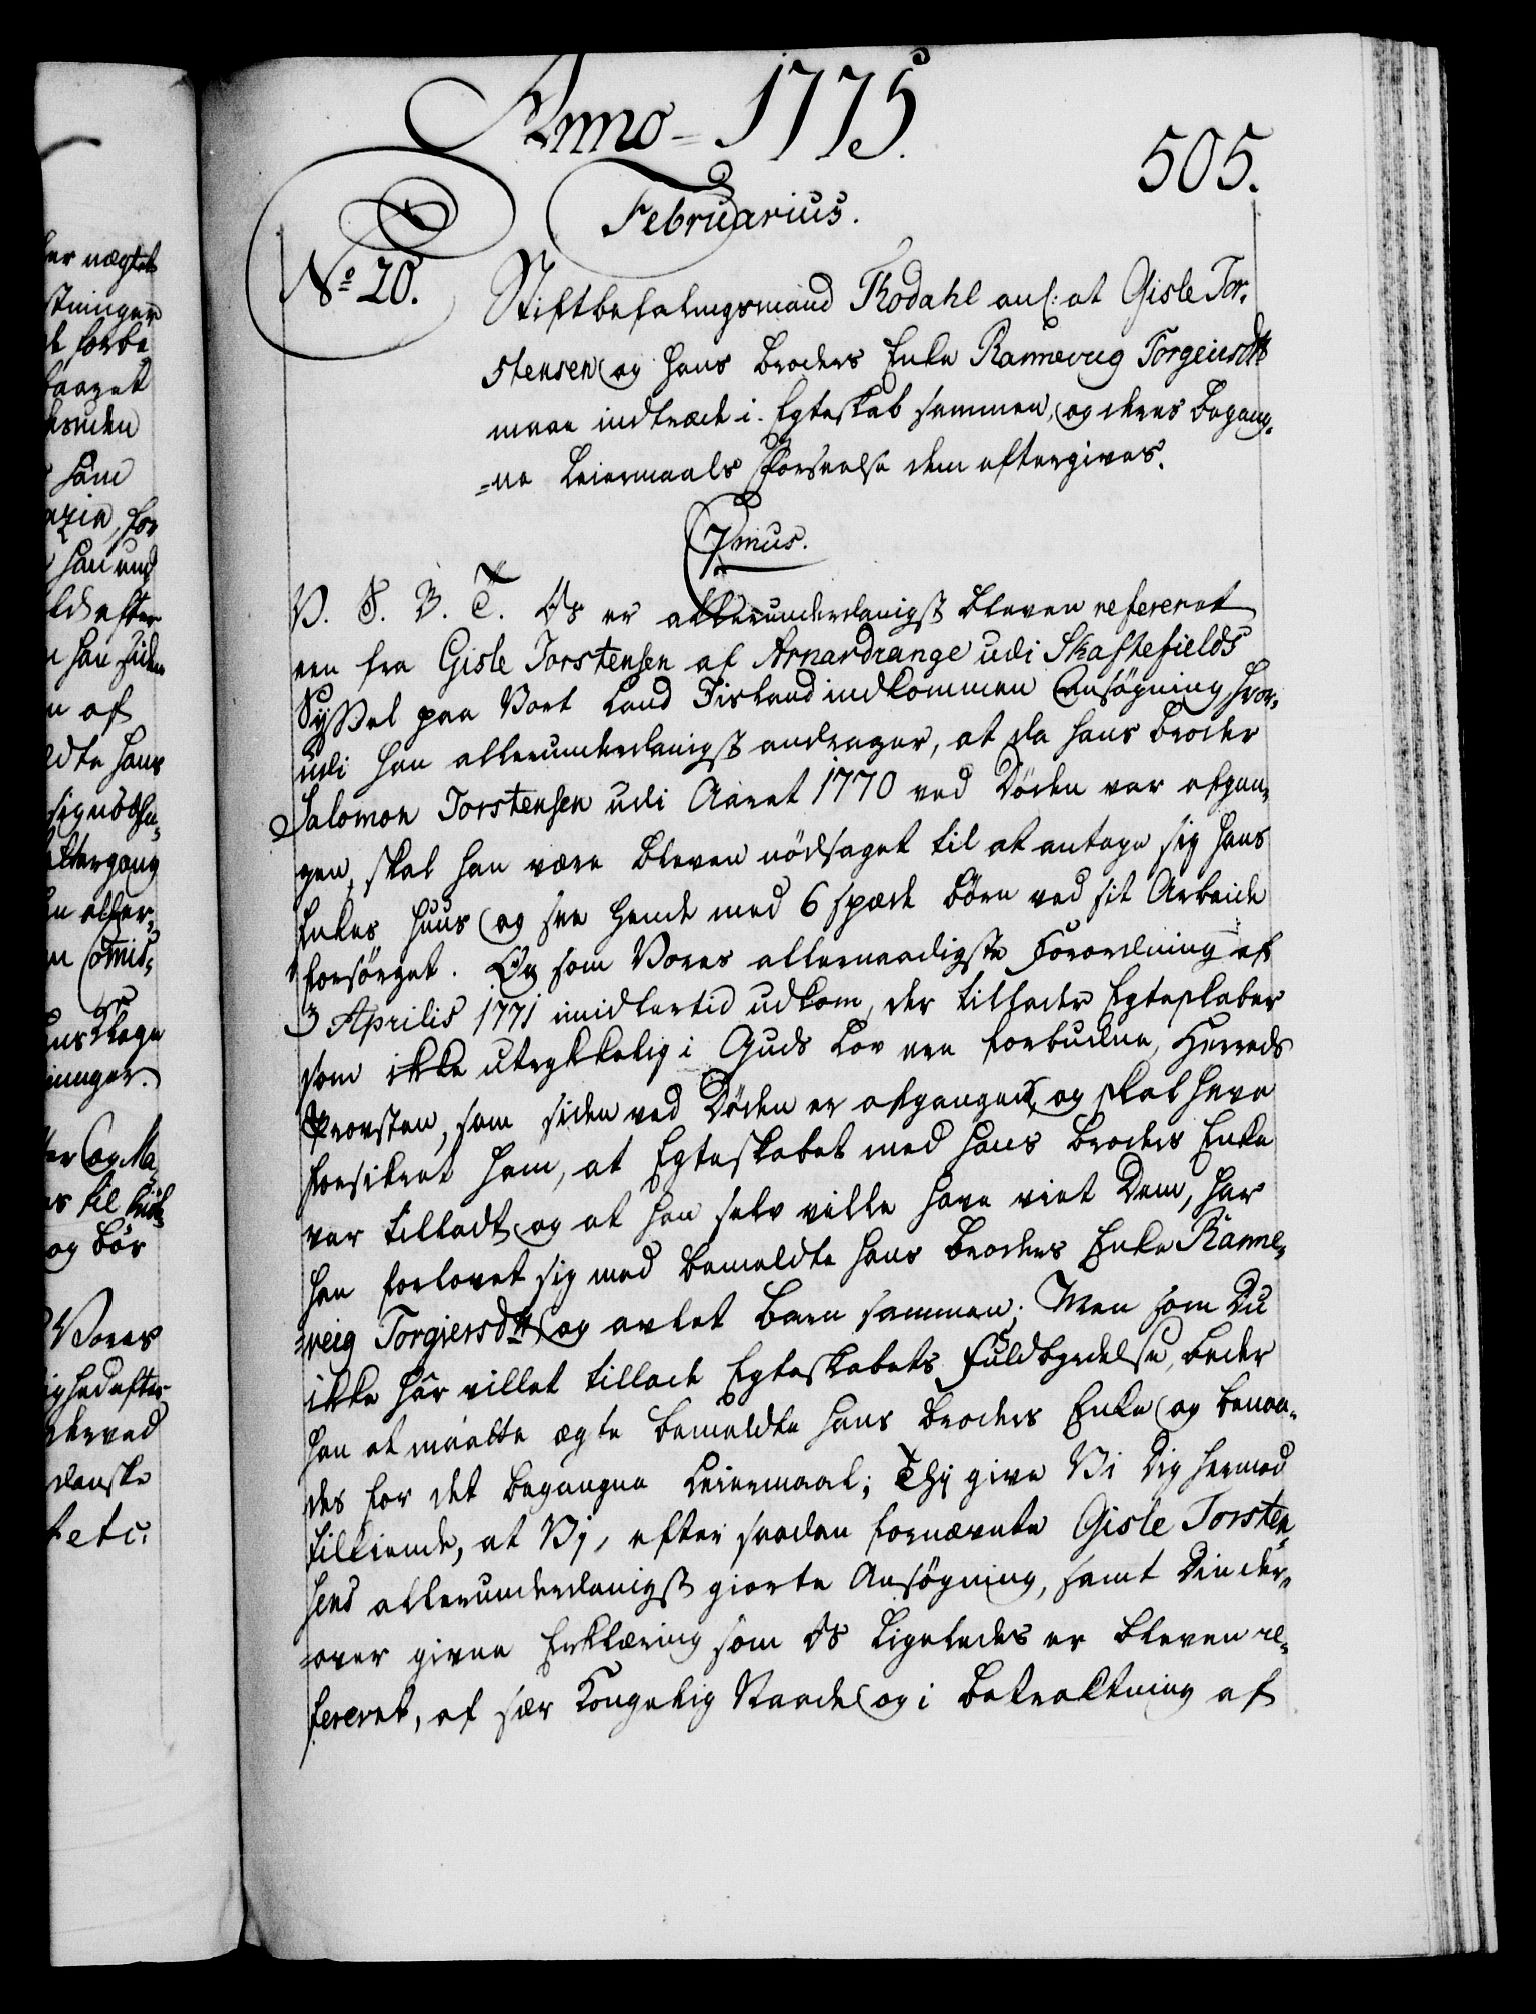 Anno 1775
505.
Februarius.
No 20.
Stiftbefalingsmand Thodahl anl: at Gisle Tor-
stensen og hans Broders Enke Ranneveig Torgeirsdtt
maae indtræde i Egteskab sammen, og deres begang-
=ne Leiermaals Forseelse dem eftergives.
7mus.
V. S. B. T. Os er allerunderdanigst bleven refereret
een fra Gisle Torstensen af Arnardrange udi Skaftefields
Syssel paa Vort Land Iisland indkommen Ansøgning hvor-
udi han allerunderdanigst andrager, at da hans Broder
Salomon Torstensen udi Aaret 1770 ved Døden var afgan-
gen, skal han være bleven nødsaget til at antage sig hans
Enkes Huus og see hende med 6 spæde Børn ved sit Arbeide
forsørget. Og som Vores allernaadigste Forordning af
3 Aprilis 1771 imidlertid udkom, der tillader Egteskaber
som ikke utrykkelig i Guds Lov ere forbudne, Herreds
Provsten, som siden ved Døden er afgangen, og skal have
forsikret ham, at Egteskabet med hans Broders Enke
var tilladt og at han selv ville have viet Dem, har
han forlovet sig med bemeldte hans Broders Enke Ranne-
=veig Torgiersdtt og avlet Barn sammen; Men som Du
ikke har villet tillade Egteskabets Fuldbyrdelse, beder
han at maatte ægte bemeldte hans Broders Enke og benaa-
des for det begangne Leiermaal; Thi give Vi Dig hermed
tilkiende, at Vi, efter saadan fornævnte Gisle Torsten-
sens allerunderdanigst giorte Ansøgning, samt Din der-
=over givne Erklæring som Os ligeledes er bleven re-
fereret, af sær Kongelig Naade og i Betragtning af